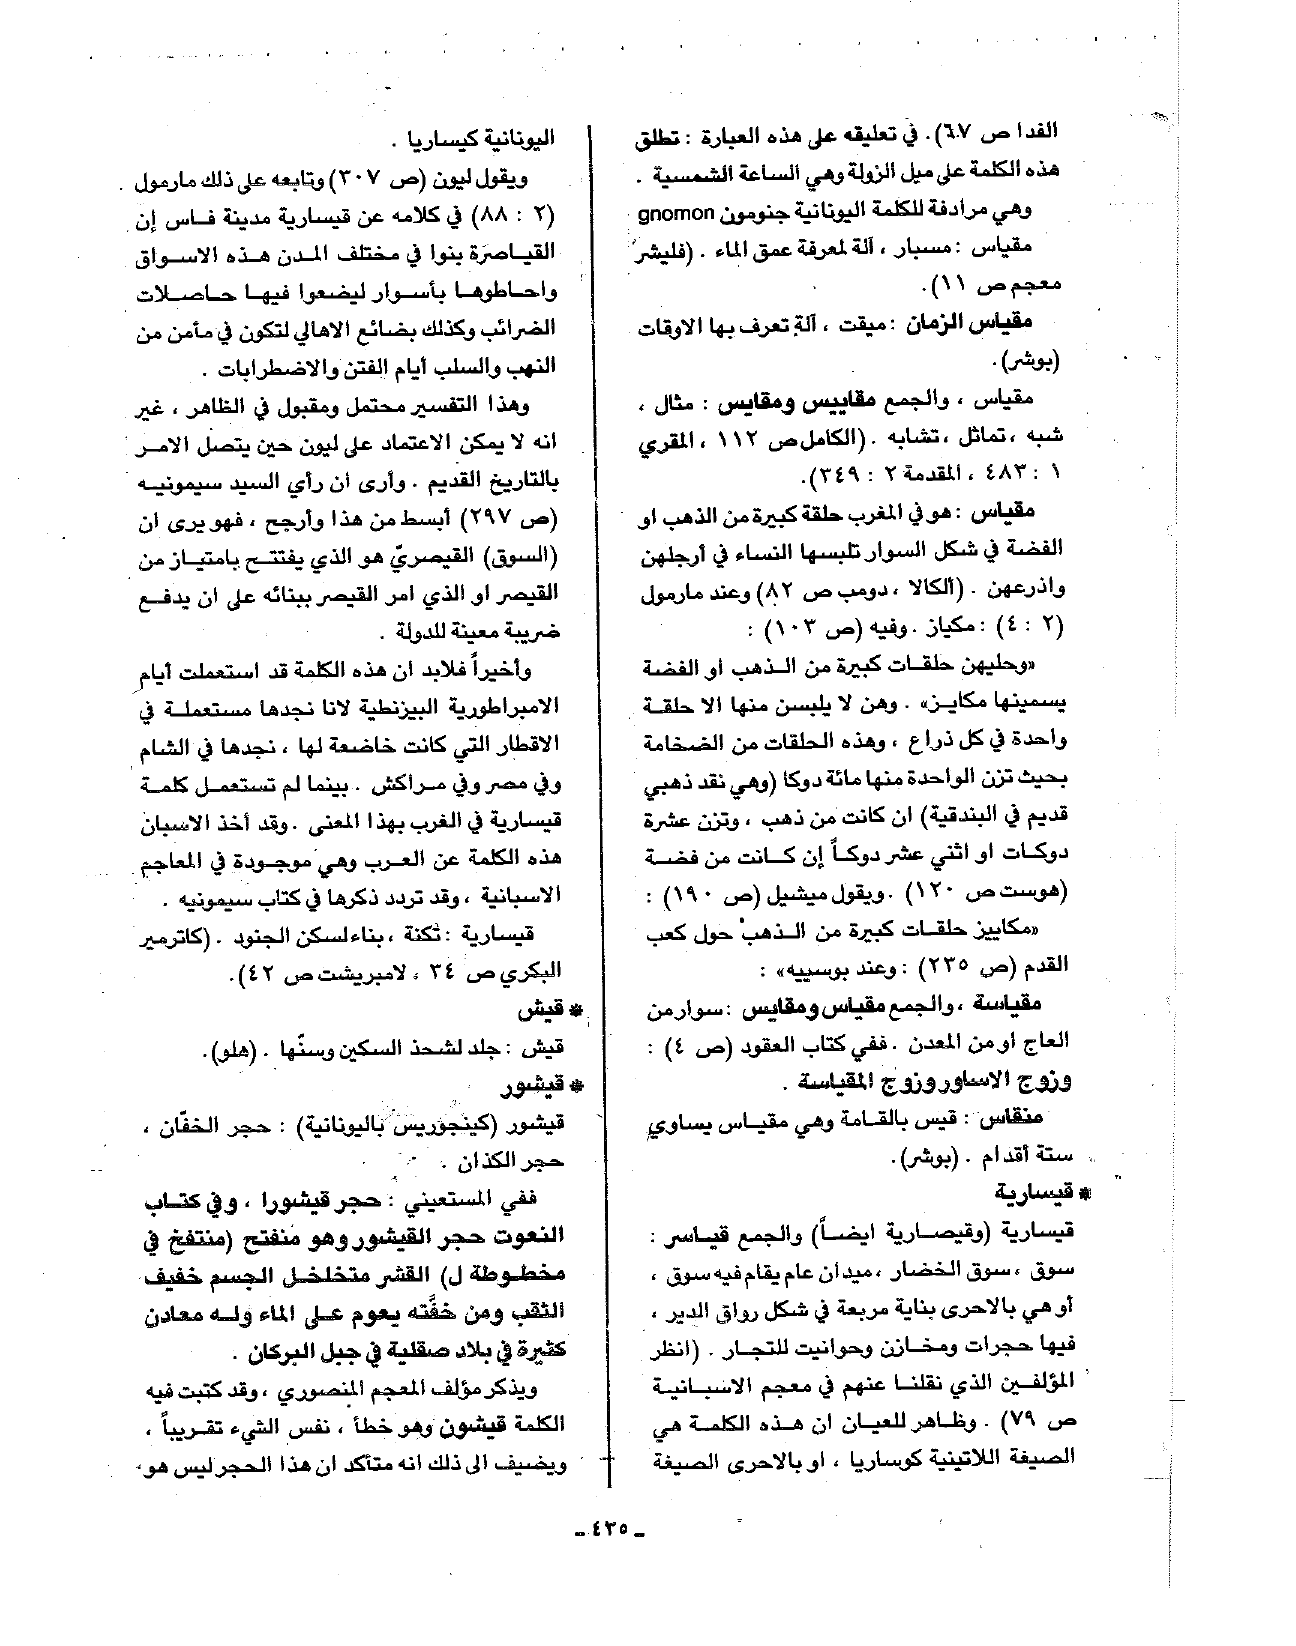 الفدا ص ٦٧). في تعليقه على هذه العبارة : تطلق
هذه الكلمة على ميل الزولة وهي الساعة الشمسية .
وهي مرادفة للكلمة اليونانية جنومون gnomon
مقياس : مسبار ، آلة لمعرفة عمق الماء . (فليشر
معجم ص ١١).
مقياس الزمان : ميقت ، آلة تعرف بها الاوقات
(بوشر).
مقياس ، والجمع مقاييس ومقايس : مثال ،
شبه ، تماثل ، تشابه . (الكامل ص ١١٢ ، المقري
١ : ٤٨٣ ، المقدمة ٢ : ٣٤٩).
مقياس : هو في المغرب حلقة كبيرة من الذهب او
الفضة في شكل السوار تلبسها النساء في أرجلهن
واذرعهن . (ألكالا ، دومب ص ٨٢) وعند مارمول
(٢ : ٤) : مكياز . وفيه (ص ١٠٣) :
«وحليهن حلقات كبيرة من الذهب او الفضة
يسمينها مكايز» . وهن لا يلبسن منها الا حلقة
واحدة في كل ذراع ، وهذه الحلقات من الضخامة
بحيث تزن الواحدة منها مائة دوكا (وهي نقد ذهبي
قديم في البندقية) ان كانت من ذهب ، وتزن عشرة
دوكات او اثني عشر دوكاً إن كانت من فضة
(هوست ص ١٢٠) . ويقول ميشيل (ص ١٩٠) :
«مكاييز حلقات كبيرة من الذهب حول كعب
القدم (ص ٢٣٥) : وعند بوسييه» :
مقياسة ، والجمع مقياس ومقايس : سوار من
العاج او من المعدن . ففي كتاب العقود (ص ٤) :
وزوج الاساور وزوج المقياسة .
منقاس : قيس بالقامة وهي مقياس يساوي
ستة أقدام . (بوشر).
* قيسارية
قيسارية (وقيصارية ايضاً) والجمع قياسر :
سوق ، سوق الخضار ، ميدان عام يقام فيه سوق ،
أو هي بالاحرى بناية مربعة في شكل رواق الدير ،
فيها حجرات ومخازن وحوانيت للتجار . (انظر
المؤلفين الذي نقلنا عنهم في معجم الاسبانية
ص ٧٩) . وظاهر للعيان ان هذه الكلمة هي
الصيغة اللاتينية كوساريا ، او بالاحرى الصيغة
اليونانية كيساريا .
ويقول ليون (ص ٣٠٧) وتابعه على ذلك مارمول .
(٢ : ٨٨) في كلامه عن قيسارية مدينة فاس إن
القياصرة بنوا في مختلف المدن هذه الاسواق
واحاطوها بأسوار ليضعوا فيها حاصلات
الضرائب وكذلك بضائع الاهالي لتكون في مأمن من
النهب والسلب أيام الفتن والاضطرابات .
وهذا التفسير محتمل ومقبول في الظاهر ، غير
انه لا يمكن الاعتماد على ليون حين يتصل الامر
بالتاريخ القديم . وأرى أن رأي السيد سيمونيه
(ص ٢٩٧) أبسط من هذا وأرجح ، فهو يرى ان
(السوق) القيصريّ هو الذي يفتتح بامتياز من
القيصر او الذي امر القيصر ببنائه على ان يدفع
ضريبة معينة للدولة .
وأخيراً فلابد ان هذه الكلمة قد استعملت أيام
الامبراطورية البيزنطية لانا نجدها مستعملة في
الاقطار التي كانت خاضعة لها ، نجدها في الشام
وفي مصر وفي مراكش . بينما لم تستعمل كلمة
قيسارية في الغرب بهذا المعنى . وقد أخذ الاسبان
هذه الكلمة عن العرب وهي موجودة في المعاجم
الاسبانية ، وقد تردد ذكرها في كتاب سيمونيه .
قيسارية : ثكنة ، بناء لسكن الجنود . (كاترمير
البكري ص ٣٤ ، لامبريشت ص ٤٢).
* قيش
قيش : جلد لشحذ السكين وسنّها . (هلو).
* قيشور
قيشور (كينجوريس باليونانية) : حجر الخفّان ،
حجر الكذان .
ففي المستعيني : حجر قيشورا ، وفي كتاب
النعوت حجر القيشور وهو منفتح (منتفخ في
مخطوطة ل) القشر متخلخل الجسم خفيف
الثقب ومن خفّته يعوم على الماء وله معادن
كثيرة في بلاد صقلية في جبل البركان .
ويذكر مؤلف المعجم المنصوري ، وقد كتبت فيه
الكلمة قيشون وهو خطأ ، نفس الشيء تقريباً ،
ويضيف الى ذلك انه متأكد ان هذا الحجر ليس هو
ـ ٤٣٥ ـ